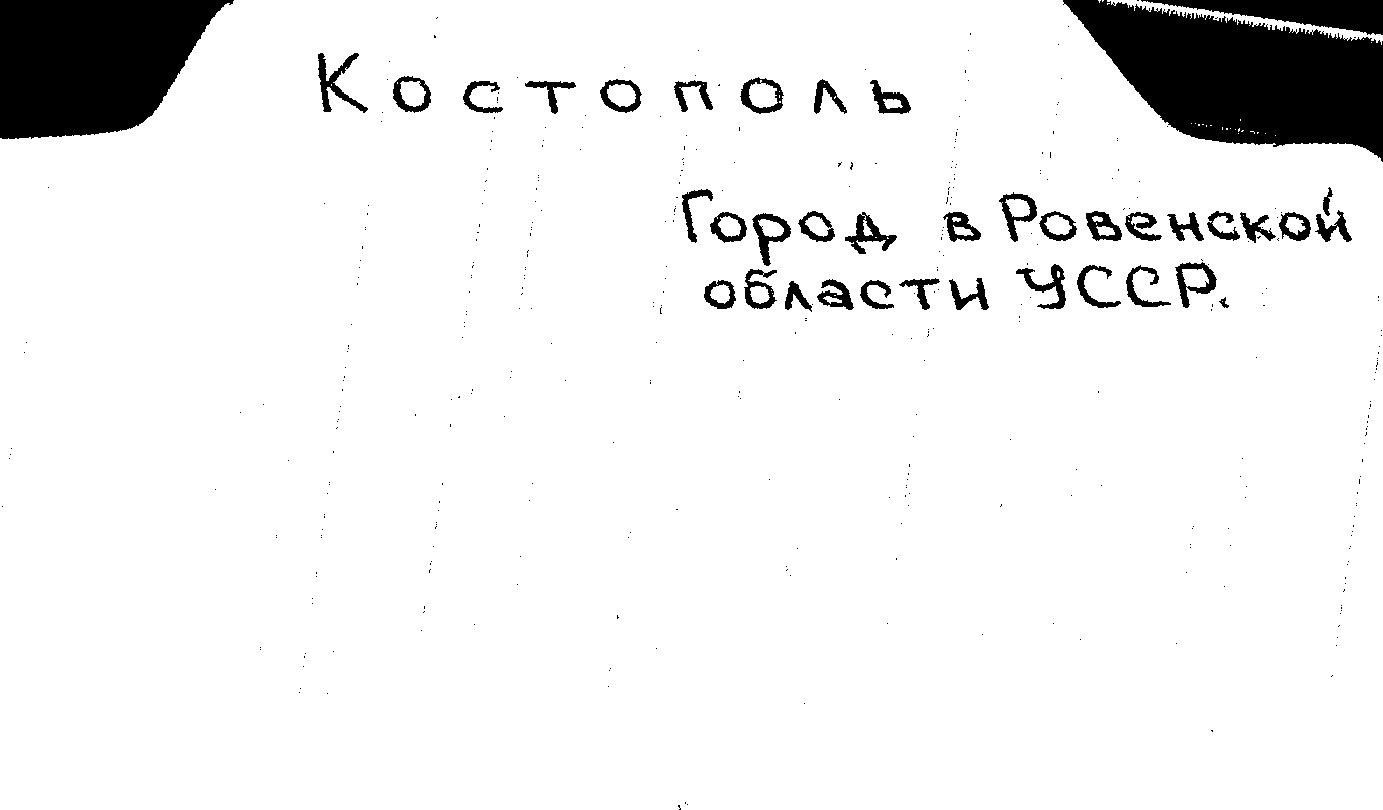 Костополь
Город в Ровенской
области УССР.